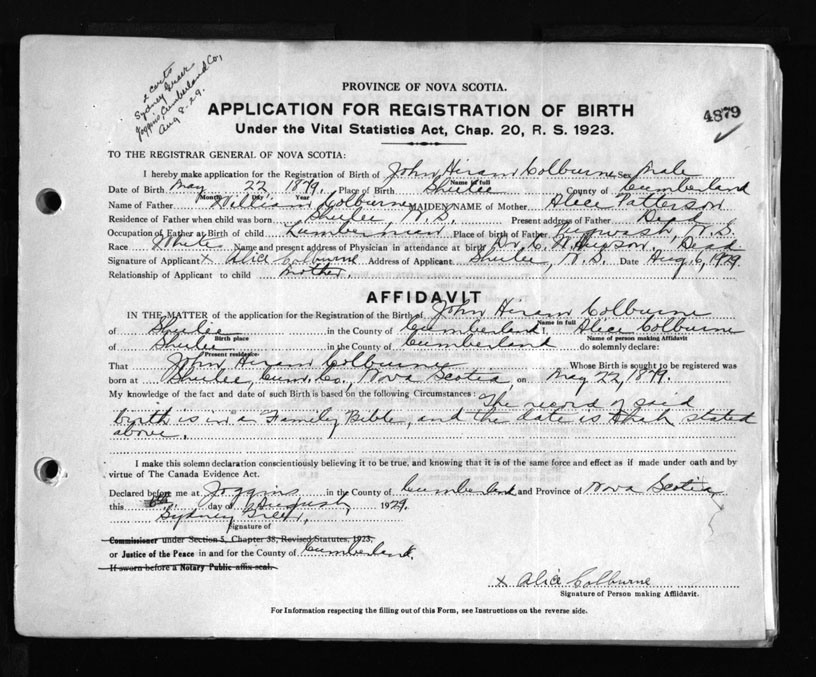 2 certs
Sydney Greer
Joggins, Cumberland Co,
Aug 8-29.
PROVINCE OF NOVA SCOTIA.
APPLICATION FOR REGISTRATION OF BIRTH
4879
Under the Vital Statistics Act, Chap. 20, R. S. 1923.
TO THE REGISTRAR GENERAL OF NOVA SCOTIA:
I hereby make application for the Registration of Birth of John Hiram Colburne Sex Male
Name in full
Date of Birth May 22 1879. Place of Birth Shulee County of Cumberland
Month Day Year
Name of Father William Colburne MAIDEN NAME of Mother Alice Patterson
Residence of Father when child was born Shulee, N.S. Present address of Father Dead
Occupation of Father at Birth of child Lumberman Place of birth of Father Pugwash, N.S.
Race White Name and present address of Physician in attendance at birth Dr. C. Hewson. Dead
Signature of Applicant x Alice Colburne Address of Applicant Shulee, N.S. Date Aug 6, 1929.
Relationship of Applicant to child mother.
AFFIDAVIT
IN THE MATTER of the application for the Registration of the Birth of John Hiram Colburne
Name in full
of Shulee in the County of Cumberland I Alice Colburne
Birth place Name of person making Affidavit
of Shulee in the County of Cumberland do solemnly declare:
Present residence
That John Hiram Colburne Whose Birth is sought to be registered was
born at Shulee, Cum. Co., Nova Scotia, on May 22, 1879.
My knowledge of the fact and date of such Birth is based on the following Circumstances: The record of said
birth is in a Family Bible, and the date is that stated
above.
I make this solemn declaration conscientiously believing it to be true, and knowing that it is of the same force and effect as if made under oath and by
virtue of The Canada Evidence Act.
Declared before me at Joggins in the County of Cumberland and Province of Nova Scotia
this 6th day of August 1929.
Sydney Greer,
Signature of
Commissioner under Section 5, Chapter 38, Revised Statutes, 1923,
or Justice of the Peace in and for the County of Cumberland.
If sworn before a Notary Public affix seal.
x Alice Colburne
Signature of Person making Affidavit.
For Information respecting the filling out of this Form, see Instructions on the reverse side.